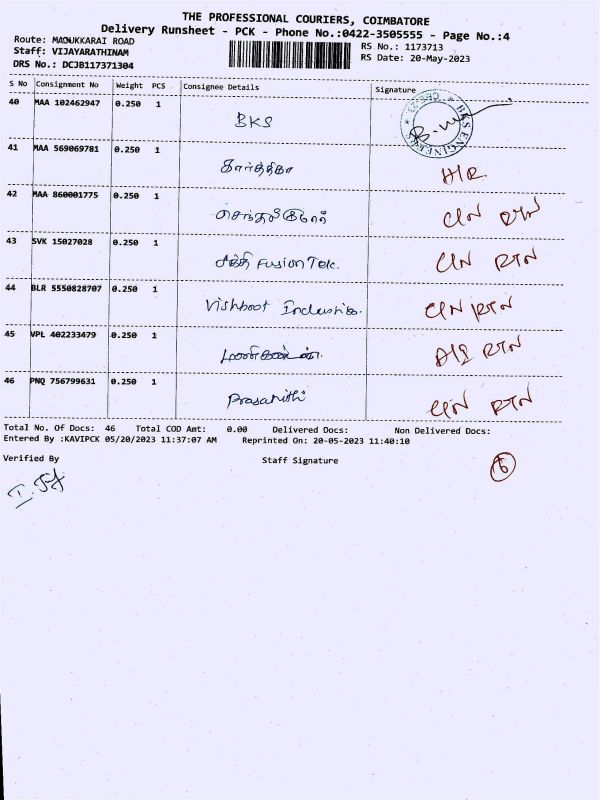 THE PROFESSIONAL COURIERS, COIMBATORE
Delivery Runsheet - PCK - Phone No.:0422-3505555 - Page No.:4
Route: MADUKKARAI ROAD
RS No.: 1173713
Staff: VIJAYARATHINAM
RS Date: 20-May-2023
DRS No.: DCJB117371304
S No Consignment No Weight PCS Consignee Details Signature
40 MAA 102462947 0.250 1 BKS
41 MAA 569069781 0.250 1 கார்த்திகா
42 MAA 860001775 0.250 1 C/N RTN
43 SVK 15027028 0.250 1 சக்தி Fusion Tek. C/N RTN
44 BLR 5550828707 0.250 1 Vishhoot Industries. C/N RTN
45 VPL 402233479 0.250 1 RTN
46 PNQ 756799631 0.250 1 Prasanthi C/N RTN
Total No. Of Docs: 46 Total COD Amt: 0.00 Delivered Docs: Non Delivered Docs:
Entered By :KAVIPCK 05/20/2023 11:37:07 AM Reprinted On: 20-05-2023 11:40:10
Verified By Staff Signature
6